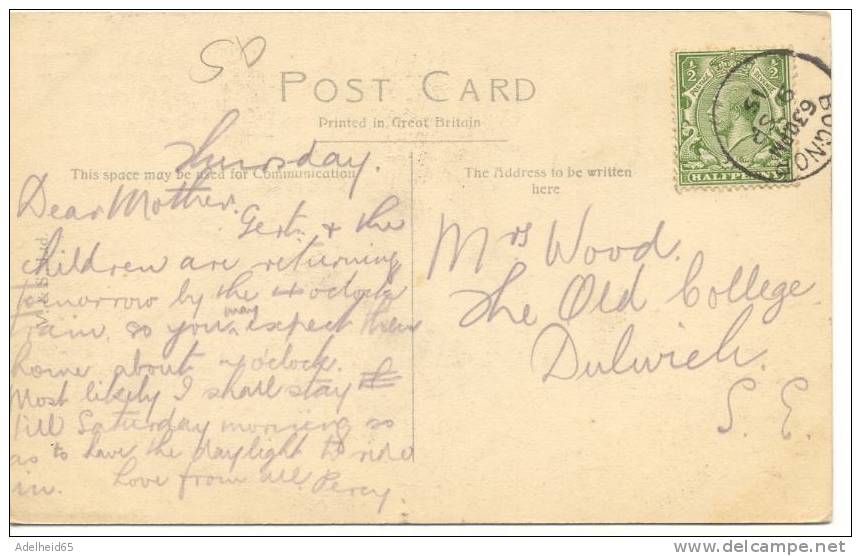 POST CARD
Printed in Great Britain
This space may be used for Communication
The Address to be written
here
½ ½
POSTAGE REVENUE
HALFPENNY
BOGNO
6 30 PM
15
Thursday.
Dear Mother.
Gert. & the
children are returning
tomorrow by the 4 oclock
train, so you may expect them
home about oclock.
Most likely I shall stay
till Saturday morning so
as to have the daylight to ride
in. Love from all. Percy.
Mrs Wood.
The Old College
Dulwich.
S. E.
Adelheid65
delcampe.net